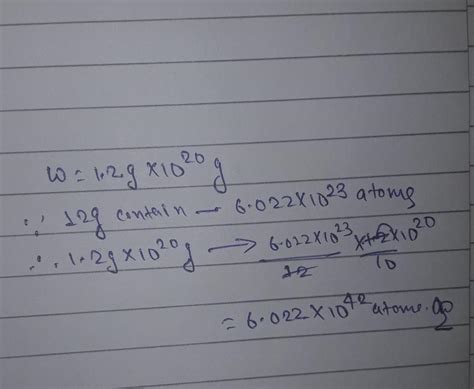 w = 1.2g × 10²⁰ g
∵ 12g contain — 6.022×10²³ atoms
∴ 1.2g×10²⁰ g → 6.022×10²³/12 × 12/10 × 10²⁰
= 6.022×10⁴² atoms.